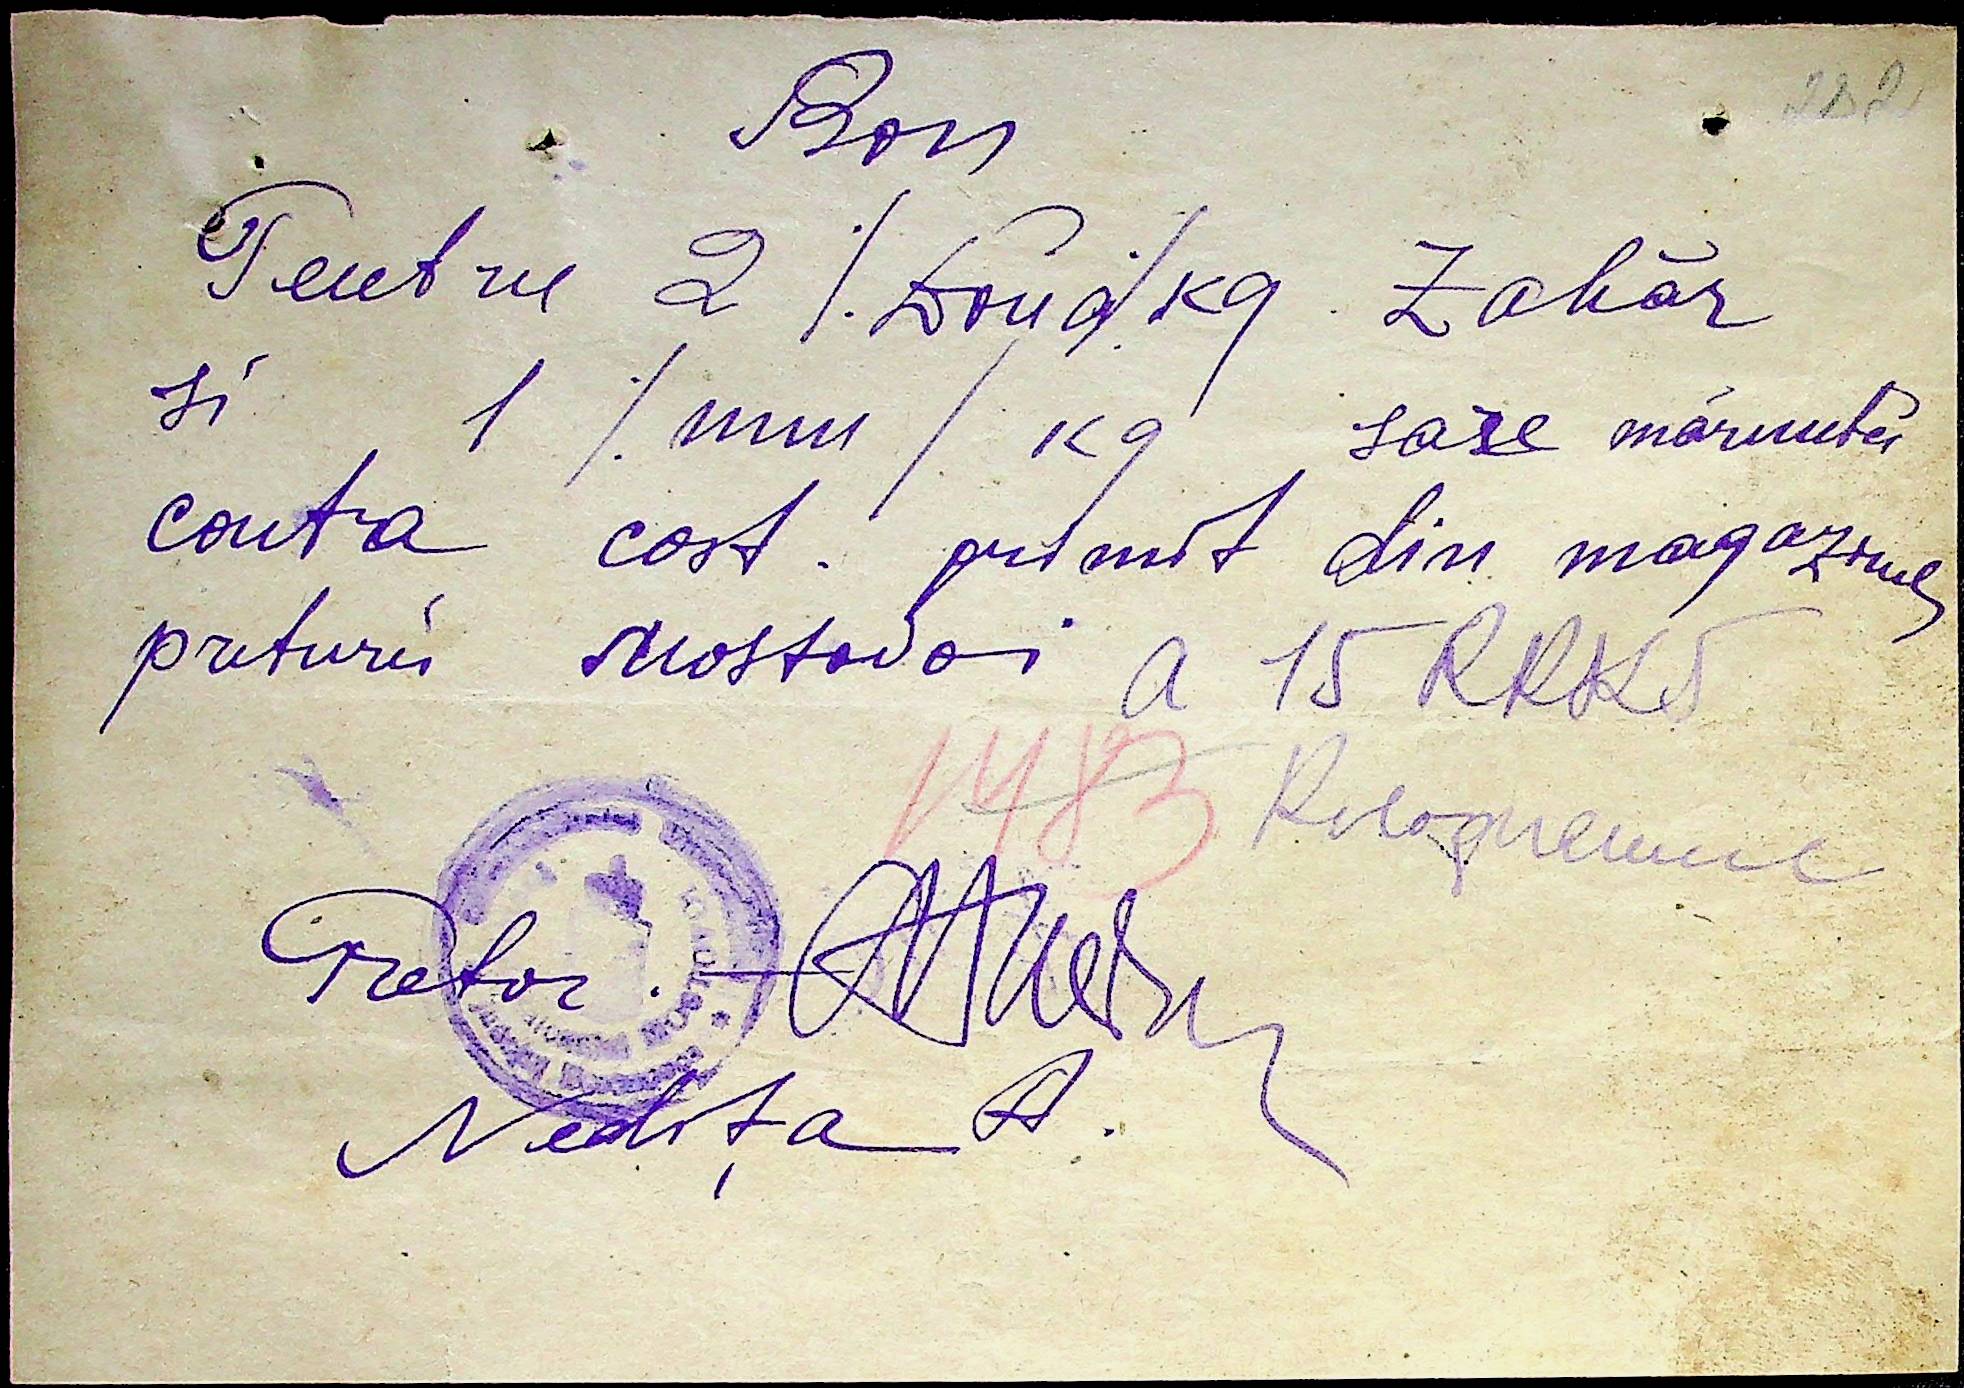 282
Bon
Pentru 2 /. Două ./ kg Zahăr
și 1 /. unu / kg sare măruntă
contra cost. primit din magazine
preturii Mostovoi a 15 RRKS
1483
Pretor.
Nedița A.